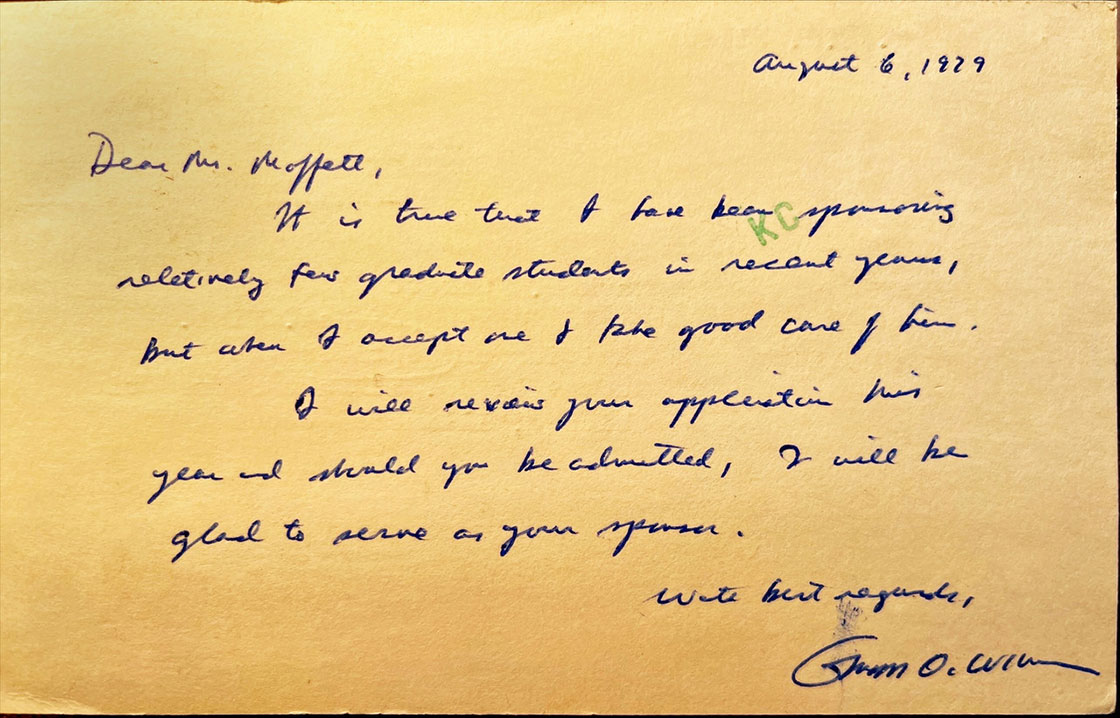 August 6, 1979
Dear Mr. Moffett,
It is true that I have been sponsoring
KC
relatively few graduate students in recent years,
but when I accept one I take good care of him.
I will review your application this
year and should you be admitted, I will be
glad to serve as your sponsor.
With best regards,
Edward O. Wilson